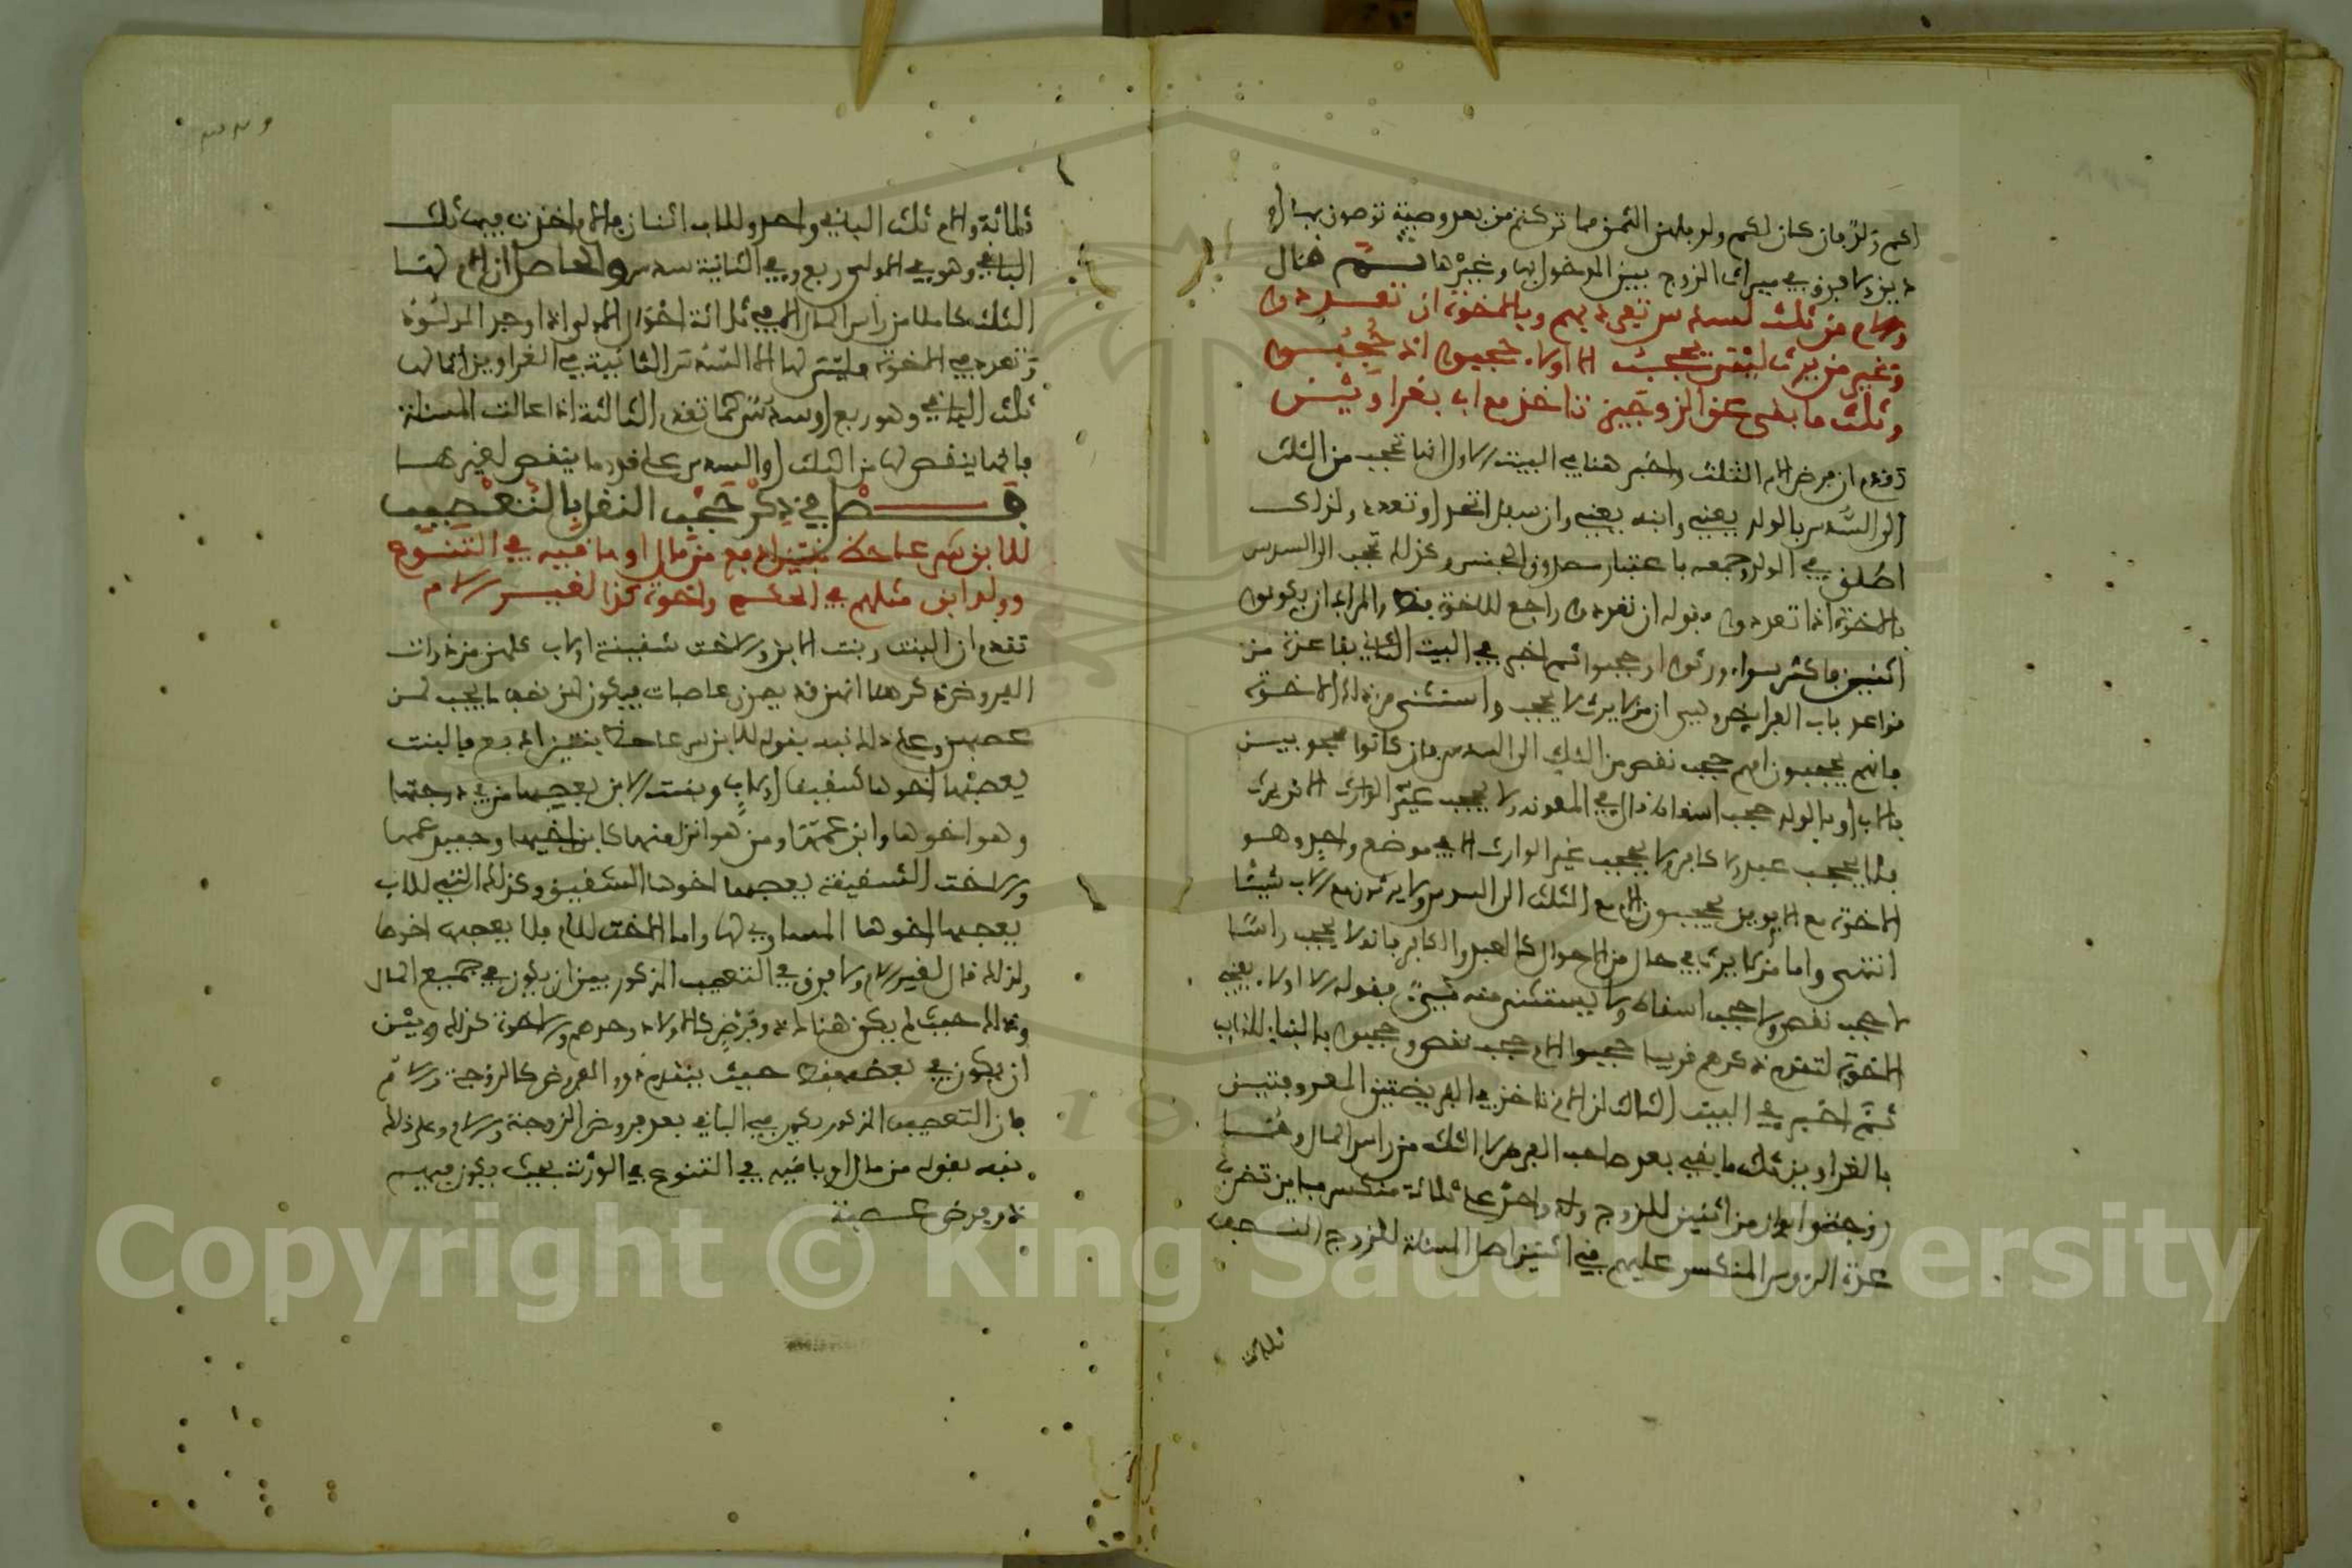 لكم ولد فإن كان لكم ولد فلهن الثمن مما تركتم من بعد وصية توصون بها أو
دين ولا فرق في ميراث الزوج بين المدخول بها وغيرها ثم قال
والام من ثلث لسدس تفرد بهم وبالاخوة ان تعددوا
وغير من يرث ليس يحجب الا اولاء حجبوا اذ حجبوا
وثلث ما بقي عن الزوجين تاخذ مع اب بغراوين
تقدم ان فرض الام الثلث واخبر هنا في البيت الاول انها تحجب من الثلث
الى السدس بالولد يعني وابنه يعني وان سفل اتحد او تعدد ولذلك
اطلق في الولد وجمعه باعتبار صدق الجنس وكذلك تحجب الى السدس
بالاخوة اذا تعددوا فقوله ان تعددوا راجع للاخوة فقط والمراد ان يكونوا
اثنين فاكثر سواء ورثوا او حجبوا ثم اخبر في البيت الثاني بقاعدة من
قواعد باب الفرائض وهي ان من لا يرث لا يحجب واستثنى من ذلك الاخوة
فانهم يحجبون امهم حجب نقص من الثلث الى السدس وان كانوا محجوبين
بالاب او بالولد حجب اسقاط قال في المعونة ولا يحجب غير الوارث الا من يرث
فلا يحجب عبد ولا كافر ولا يحجب غير الوارث الا في موضع واحد وهو
الاخوة مع الابوين يحجبون الام مع الثلث الى السدس ولا يرثون مع الاب شيئا
انتهى واما من لا يرث في حال من الاحوال كالعبد والكافر فانه لا يحجب راسا
لا حجب نقص ولا حجب اسقاط ولا يستثنى منه شيء فقوله الا اولاء يعني
الاخوة لتقدم ذكرهم قريبا حجبوا الام حجب نقص وحجبوا بالبناء للنائب
ثم اخبر في البيت الثالث ان الام تاخذ في الفريضتين المعروفتين
بالغراوين ثلث ما بقي بعد صاحب الفرض لا الثلث من راس المال وهما
زوج وابوان من اثنين للزوج واحد واحد على ثلاثة منكسر مباين تضرب
عدة الرءوس المنكسر عليهم في اثنين اصل المسئلة للزوج النصف
ثلاثة
ثلاثة وللام ثلث الباقي واحد وللاب اثنان فالام اخذت فيهما ثلث
الباقي وهو في الاولى ربع وفي الثانية سدس والحاصل ان الام لها
الثلث كاملا من راس المال الا في ثلاثة احوال الاولى اذا وجد الولد او
وتعدد في الاخوة فليس لها الا السدس الثانية في الغراوين انما لها
ثلث الباقي وهو ربع او سدس كما تقدم الثالثة اذا عالت المسئلة
فانما ينقص لها من الثلث او السدس على قدر ما ينقص لغيرها
فصل في ذكر حجب النقل بالتعصيب
للابن سهم عاصبا بنتين ادفع من مال او باقيه في التنوع
وولد ابن مثلهم في الحكم واخوة كذا لغير الام
تقدم ان البنت وبنت الابن والاخت شقيقة او لاب كلهن من ذوات
الفروض ذكر هنا انهن قد يصرن عاصبات فيكون لهن نصف ما يجب لمن
عصبهن وعلى ذلك نبه بقوله للابن سهم عاصبا بنتين ادفع فالبنت
يعصبها اخوها شقيقا او لاب وبنت الابن يعصبها من في درجتها
وهو اخوها وابن عمها ومن هو انزل منها كابن اخيها وحفيد عمها
والاخت الشقيقة يعصبها اخوها الشقيق وكذلك التي للاب
يعصبها اخوها المساوي لها واما الاخت للام فلا يعصبها اخوها
ولذلك قال لغير الام ولا فرق في التعصيب المذكور بين ان يكون في جميع المال
وذلك حيث لم يكن هناك ذو فرض كالاولاد وحدهم والاخوة كذلك وبين
ان يكون في بعضه فقط حيث يتقدم ذوو الفروض كالزوجة والام
فان التعصيب المذكور يكون في الباقي بعد فروض الزوجة والام وعلى ذلك
نبه بقوله من مال او باقيه في التنوع في الورثة بحيث يكون فيهم
ذو فرض وعصبة
Copyright © King Saud University